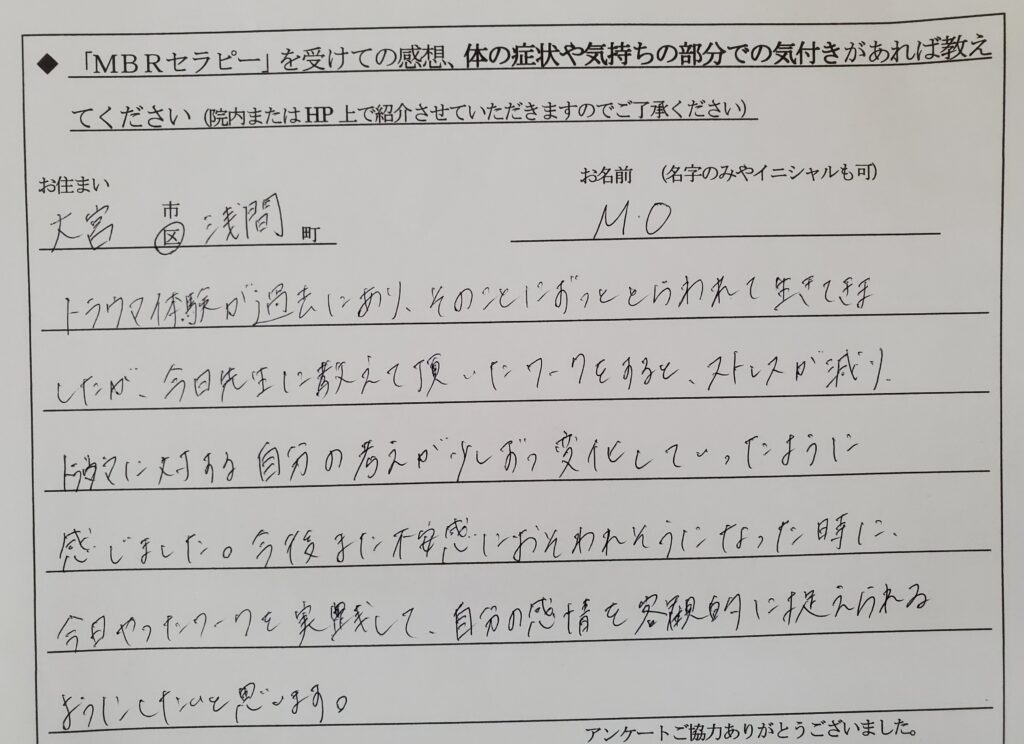 ◆ 「MBRセラピー」を受けての感想、体の症状や気持ちの部分での気付きがあれば教え
てください（院内またはHP上で紹介させていただきますのでご了承ください）
お住まい
お名前 （名字のみやイニシャルも可）
大宮 市区 浅間 町
M.O
トラウマ体験が過去にあり、そのことにずっととらわれて生きてきま
したが、今日先生に教えて頂いたワークをすると、ストレスが減り、
トラウマに対する自分の考えが少しずつ変化していったように
感じました。今後また不安感におそわれそうになった時に、
今日やったワークを実践して、自分の感情を客観的に捉えられる
ようにしたいと思います。
アンケートご協力ありがとうございました。